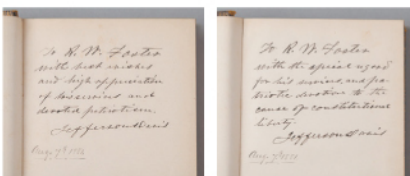 To R. W. Foster
with best wishes
and high appreciation
of his service and
devoted patriotism.
Jefferson Davis
To R. W. Foster
with the special regard
for his services, and pa-
triotic devotion to the
cause of constitutional
liberty.
Jefferson Davis